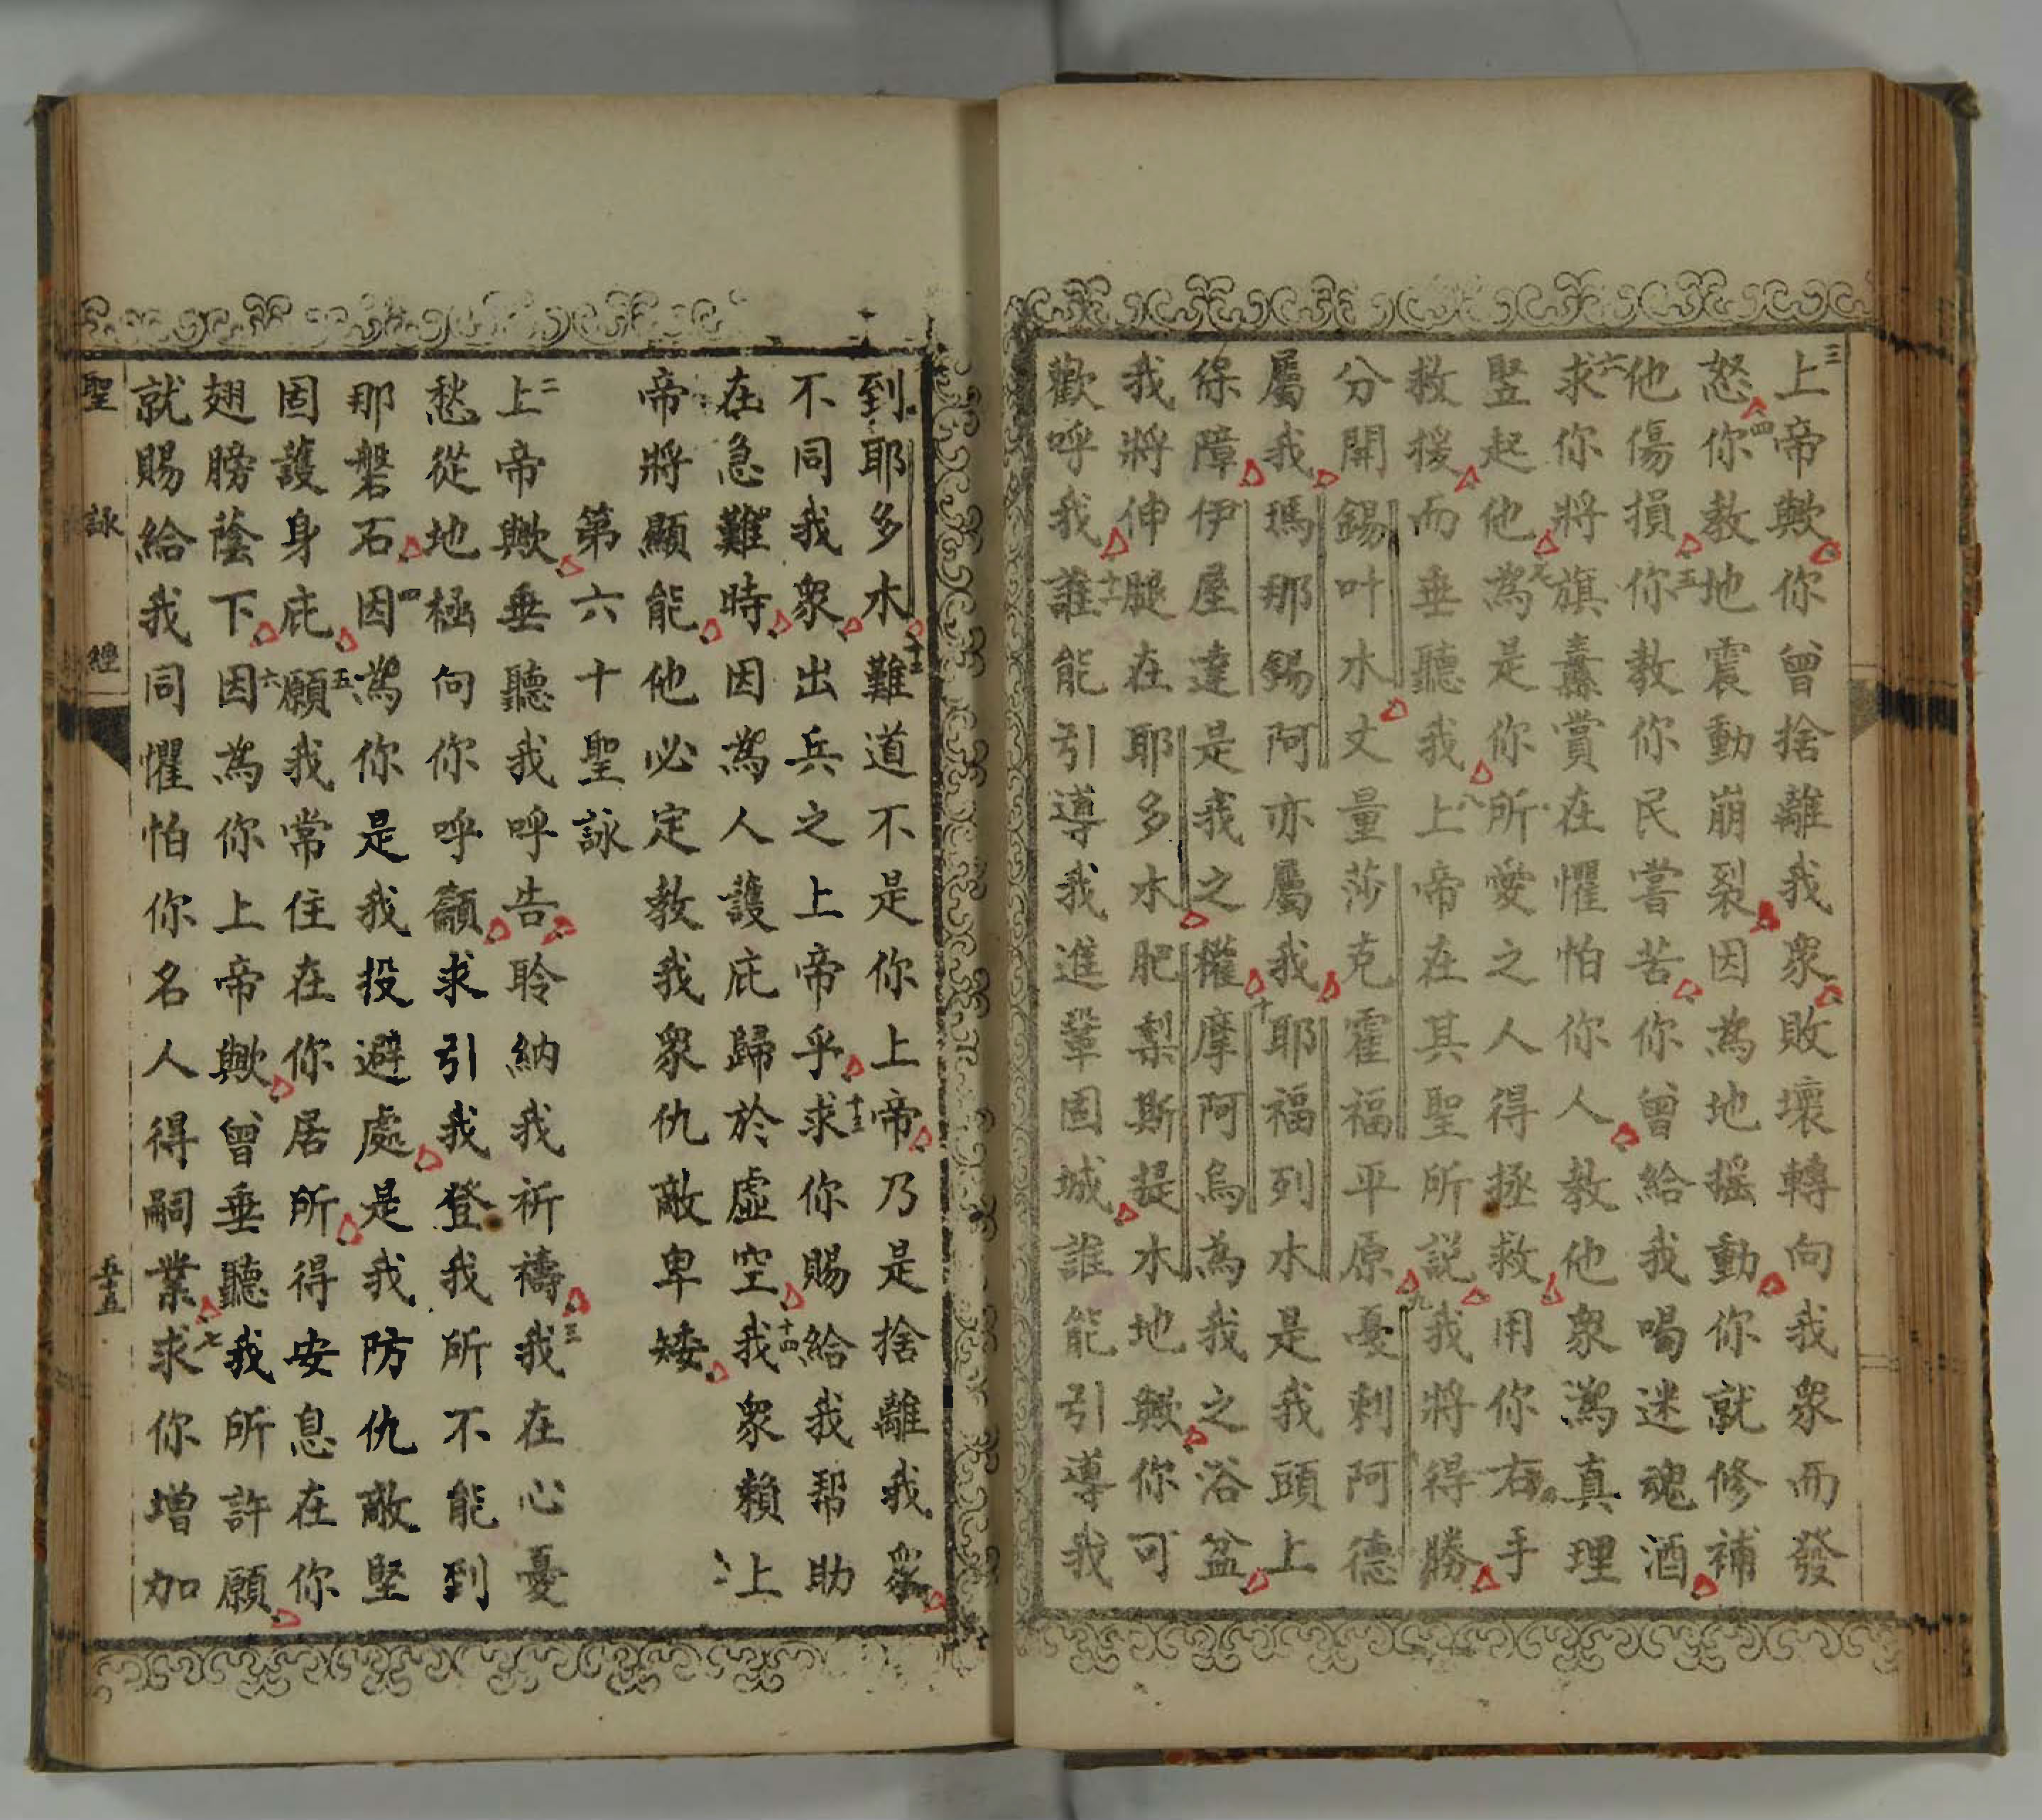 三上帝歟你曾捨離我衆敗壞轉向我衆而發
怒四你教地震動崩裂因為地搖動你就修補
他傷損五你教你民嘗苦你曾給我喝迷魂酒
六求你將旗纛賞在懼怕你人教他衆為真理
竪起他七為是你所愛之人得拯救用你右手
救援而垂聽我八上帝在其聖所説九我將得勝
分開錫叶水丈量莎克霍福平原憂剌阿德
屬我瑪那錫阿亦屬我十耶福列水是我頭上
保障伊屋達是我之權摩阿烏為我之浴盆
我將伸腿在耶多水肥梨斯提水地歟你可
歡呼我十一誰能引導我進鞏固城誰能引導我
到耶多水十二難道不是你上帝乃是捨離我衆
不同我衆出兵之上帝乎十三求你賜給我帮助
在急難時因為人護庇歸於虛空十四我衆賴上
帝將顯能他必定教我衆仇敵卑矮
第六十聖詠
二上帝歟垂聽我呼告聆納我祈禱三我在心憂
愁從地極向你呼籲求引我登我所不能到
那磐石四因為你是我投避處是我防仇敵堅
固護身庇五願我常住在你居所得安息在你
翅膀蔭下六因為你上帝歟曾垂聽我所許願
就賜給我同懼怕你名人得嗣業七求你增加
聖詠經
五十五